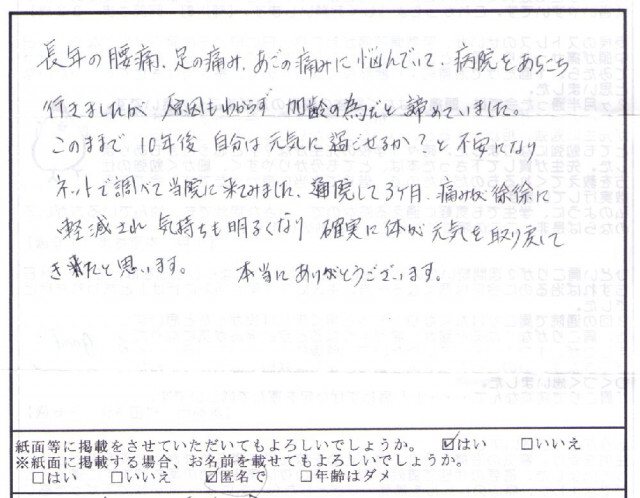 長年の腰痛、足の痛み、あごの痛みに悩んでいて、病院をあちこち
行きましたが、原因もわからず 加齢の為だと諦めていました。
このままで 10年後 自分は元気に過ごせるか?と 不安になり
ネットで調べて当院に来てみました。通院して3ヶ月、痛みが徐徐に
軽減され 気持ちも明るくなり 確実に体が元気を取り戻して
き来たと思います。 本当にありがとうございます。
紙面等に掲載をさせていただいてもよろしいでしょうか。 ☑はい □いいえ
※紙面に掲載する場合、お名前を載せてもよろしいでしょうか。
□はい □いいえ ☑匿名で □年齢はダメ